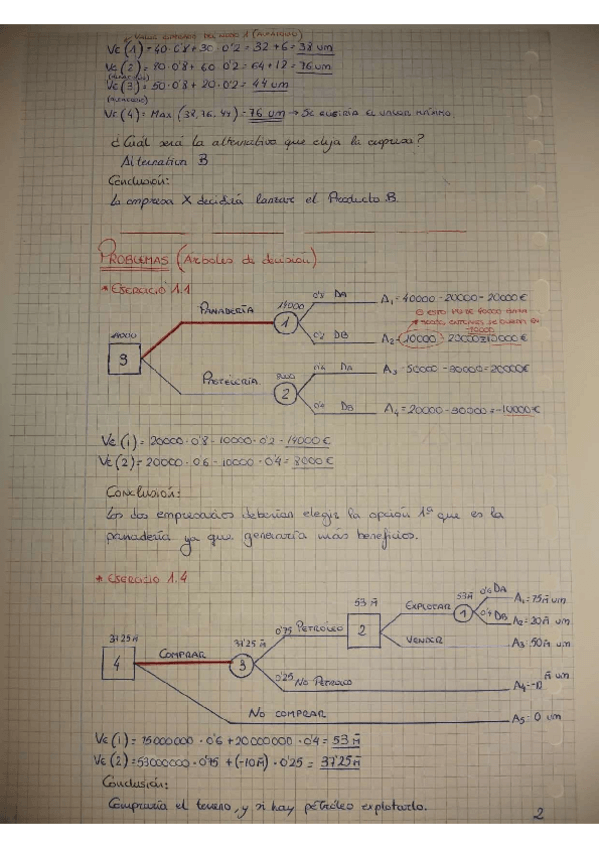 Valor esperado del nudo 1 (alfarería)
Ve(1) = 40 · 0'8 + 30 · 0'2 = 32 + 6 = 38 um
Ve(2) = 80 · 0'8 + 60 · 0'2 = 64 + 12 = 76 um
Ve(3) = 50 · 0'8 + 20 · 0'2 = 44 um
Ve(4) = Max (38, 76, 44) = 76 um → Se elegiría el valor máximo
¿Cuál será la alternativa que elija la empresa?
Alternativa B
Conclusión:
La empresa X decidirá lanzar el Producto B.
PROBLEMAS (Árboles de decisión)
* EJERCICIO 1.1
14000
3
PANADERÍA
14000
1
0'8 DA
A₁ = 40000 - 20000 = 20000€
0'2 DB
A₂ = 10000 - 20000 = -10000€
PELUQUERÍA
8000
2
0'6 DA
A₃ = 50000 - 30000 = 20000€
0'4 DB
A₄ = 20000 - 30000 = -10000€
Ve(1) = 20000 · 0'8 - 10000 · 0'2 = 14000€
Ve(2) = 20000 · 0'6 - 10000 · 0'4 = 8000€
Conclusión:
Los dos empresarios deberían elegir la opción 1ª que es la
panadería ya que generaría más beneficios.
* EJERCICIO 1.4
37'25 m̄
4
COMPRAR
37'25 m̄
3
0'75 PETRÓLEO
53 m̄
2
EXPLOTAR
53 m̄
1
0'6 DA
A₁ = 75 m̄ um
0'4 DB
A₂ = 20 m̄ um
VENDER
A₃ = 50 m̄ um
0'25 NO PETRÓLEO
A₄ = -10 m̄ um
NO COMPRAR
A₅ = 0 um
Ve(1) = 75000000 · 0'6 + 20000000 · 0'4 = 53 m̄
Ve(2) = 53000000 · 0'75 + (-10 m̄) · 0'25 = 37'25 m̄
Conclusión:
Compraría el terreno, y si hay petróleo explotarlo.
2